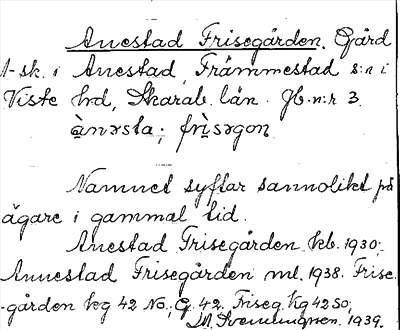 Anestad Frisegården. Gård
1-sk. i Anestad, Främmestad s:n i
Viste hd, Skarab. län. Jb.n:r 3.
ànəsta; frìsəgon
Namnet syftar sannolikt på
ägare i gammal tid.
Anestad Frisegården kb. 1930;
Annestad Frisegården ml. 1938. Frise-
-gården hfg 42 No.; G. 42. Friseg. Kg 42 SO;
1939.